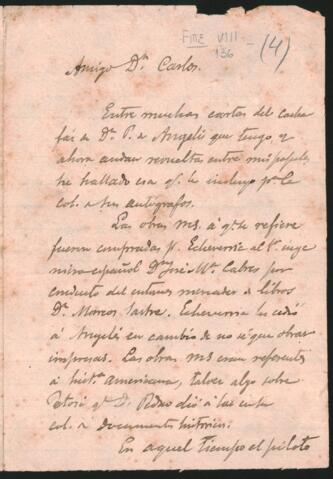 FME VIII
136
(4)
Amigo Dn Carlos.
Entre muchas cartas del
Dn P. de Angelis que tengo y
ahora andan revueltas entre mis papeles
he hallado esa qe le incluyo pa la
col. a sus autógrafos.
Las obras ms. á qe se refiere
fueron compradas pr Echeverría al Sr inge
niero español Dn José Ma Cabrer por
conducto del entonces mercader de libros
Dn Marcos Sastre. Echeverría las cedió
á Angelis en cambio de no sé qe obras
impresas. Las obras ms eran referentes
á hista americana, talvez algo sobre
Potosí qe Dn Pedro dió á luz en su
col. de documentos históricos.
En aquel tiempo el piloto